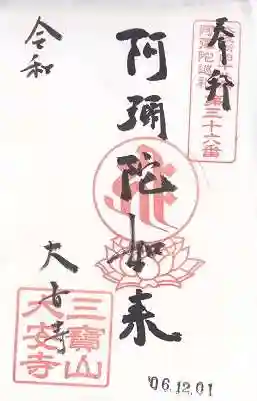 奉拝
第三十六番
阿彌陀如来
令和
大安寺
三寶山
大安寺
'06.12.01